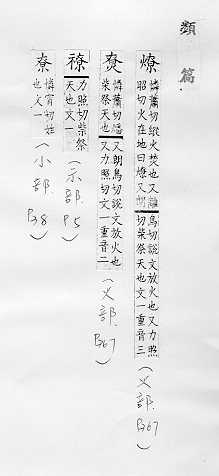 類篇.
燎 憐蕭切縱火焚也又離
昭切火在地曰燎又朗鳥切說文放火也又力照
切柴祭天也文一重音三(火部.P367)
尞 憐蕭切燔
也又朗鳥切說文放火也
又力照切文一重音二(火部.P367)
禷 力照切柴祭
天也文一(示部.P5)
尞 憐宵切姓
也文一(小部.P38)